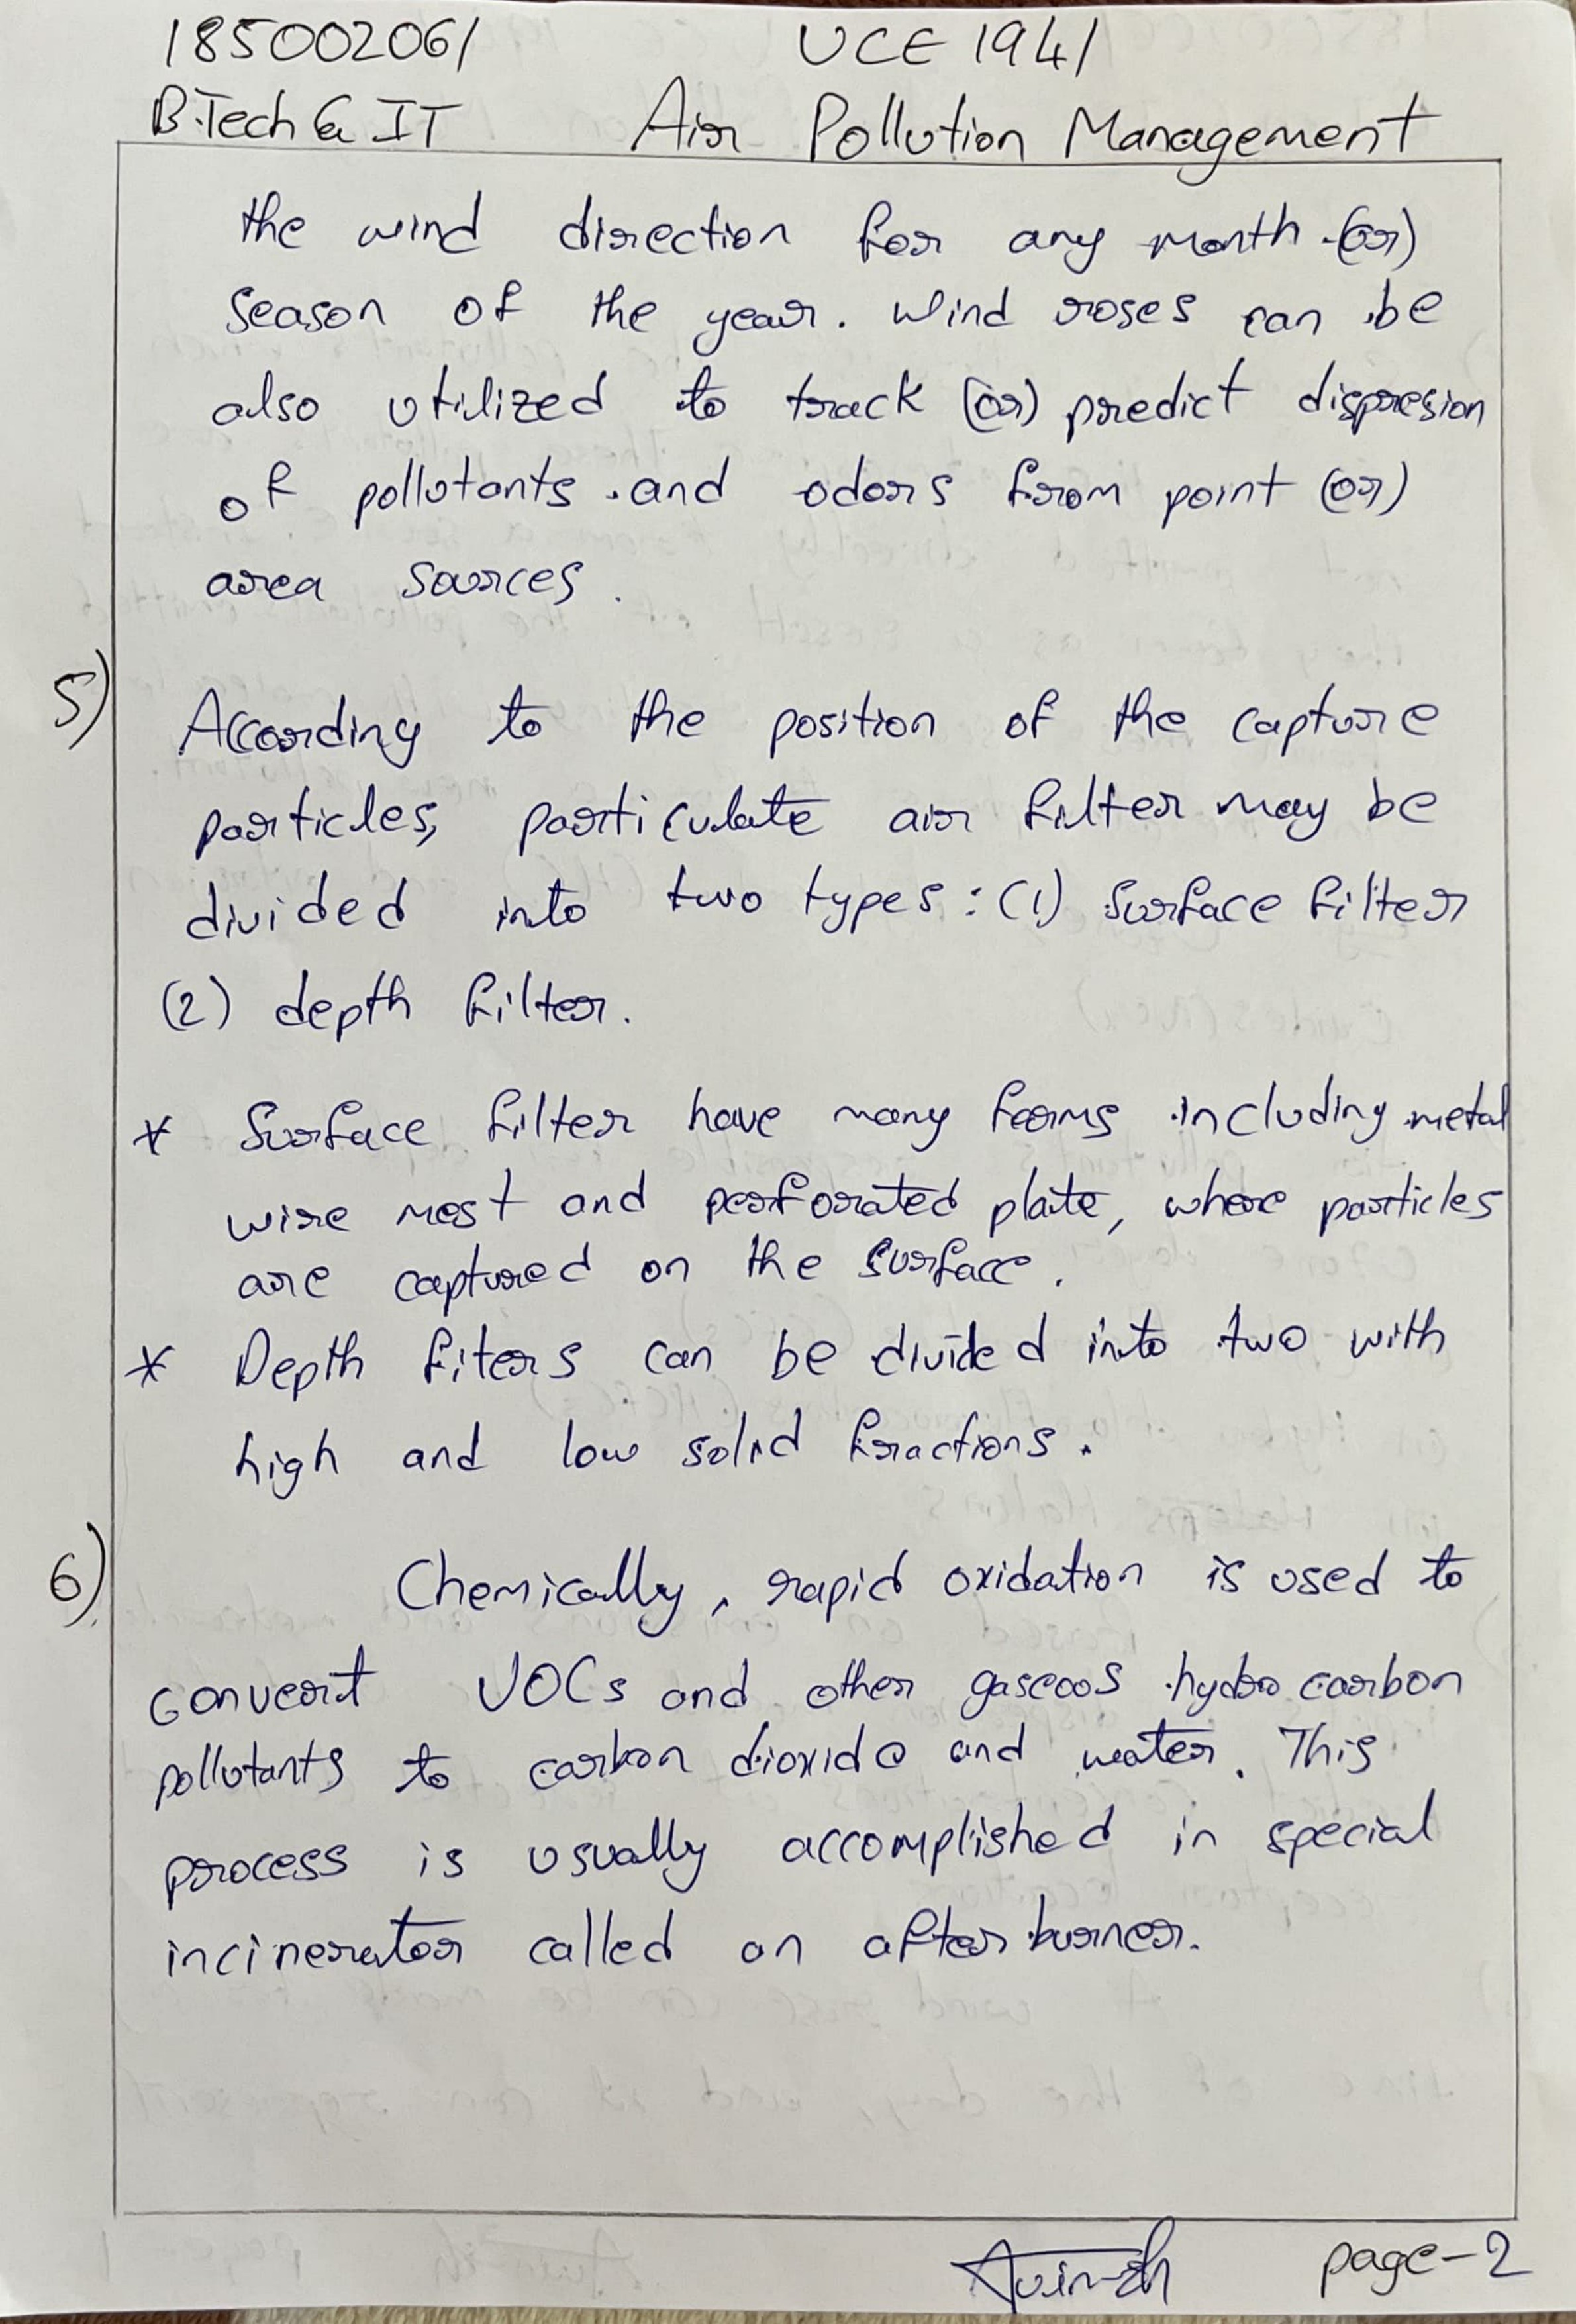 185002061
UCE 1941
B.Tech & IT
Air Pollution Management
the wind direction for any month (or)
season of the year. Wind roses can be
also utilized to track (or) predict dispresion
of pollutants and odors from point (or)
area sources.
5)
According to the position of the capture
particles, particulate air filter may be
divided into two types : (1) Surface filter
(2) depth filter.
* Surface filter have many forms including metal
wire mest and perforated plate, where particles
are captured on the surface.
* Depth fiters can be divided into two with
high and low solid fractions.
6)
Chemically, rapid oxidation is used to
convert VOCs and other gaseous hydro carbon
pollutants to carbon dioxide and water. This
process is usually accomplished in special
incinerator called an after burner.
page-2